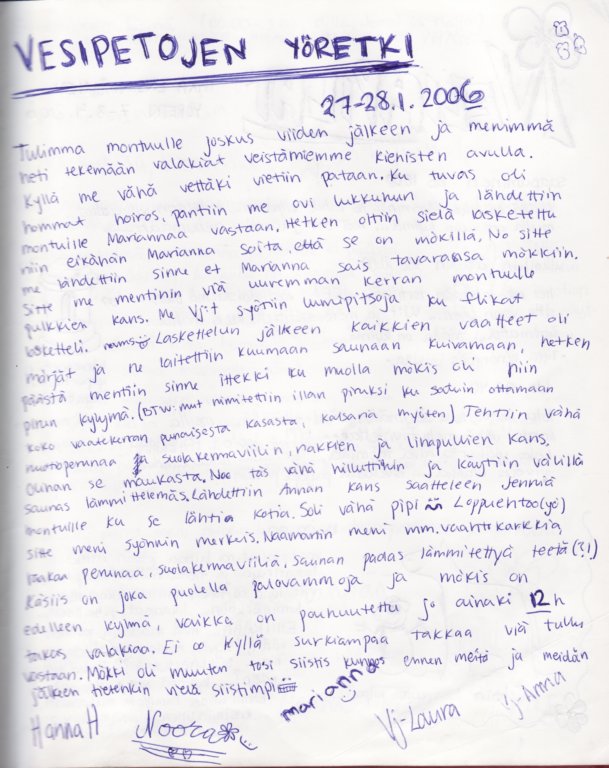 VESIPETOJEN YÖRETKI
27-28.1.2006
Tulimma montuulle joskus viiden jälkeen ja menimmä
heti tekemään valakiat veistämiemme kienisten avulla.
Kyllä me vähä vettäki vietiin pataan. Ku tuvas oli
hommat hoiros, pantiin me ovi lukkuhun ja lähdettiin
montuille Mariannaa vastaan. Hetken oltiin sielä lasketeltu
niin eikähän Marianna soita, että se on mökillä. No sitte
me lähdettiin sinne et Marianna sais tavaransa mökkiin.
Sitte me mentihin viä uuremman kerran montuulle
pulkkien kans. Me Vj:t syötiin lumipitsoja ku flikat
lasketteli. Laskettelun jälkeen kaikkien vaatteet oli
märjät ja ne laitettiin kuumaan saunaan kuivamaan, hetken
päästä mentiin sinne ittekki ku muolla mökis oli niin
pirun kylymä. (BTW: mut nimitettiin illan piruksi ku satuin ottamaan
koko vaatekerran punaisesta kasasta, kalsaria myiten) Tehtiin vähä
muotoperunaa ja suolakermaviilin, nakkien ja lihapullien kans.
Oli se maukasta. Noo täs vähä hilluttihin ja käytiin välillä
saunas lämmittelemäs. Lähdettiin Annan kans saatteleen Jenniä
montuille ku se lähti kotia. Soli vähä pipi Loppuehtoo(yö)
sitte meni syönnin merkeis. Naamariin meni mm. vaahtokarkkia,
perunaa, suolakermaviiliä, saunan padas lämmitettyä teetä (?!)
Käsiis on joka puolella palovammoja ja mökis on
edelleen kylymä, vaikka on pouhuutettu jo ainaki 12 h
takas valakiaa. Ei oo kyllä surkiampaa takkaa viä tullu
vastaan. Mökki oli muuten tosi siistis kunnos ennen meitä ja meidän
jälkeen tietenkin vielä siistimpi
Hanna H Noora marianna Vj-Laura Vj-Anna